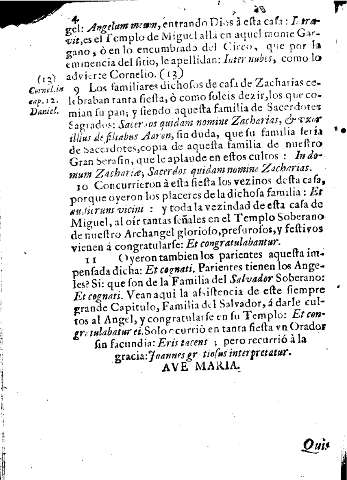 4
gel: Angelum meum, entrando Dios à esta casa: Intra-
vit, es el Templo de Miguel allà en aquel monte Gar-
gano, ò en lo encumbrado del Circo, que por la
eminencia del sitio, le apellidan: Inter nubes, como lo
advierte Cornelio. (13)
(12)
Cornel. in
cap. 12.
Daniel.
9 Los familiares dichosos de casa de Zacharias ce-
lebraban tanta fiesta, ò como soleis dezir, los que co-
mian su pan; y siendo aquesta familia de Sacerdotes
Sagrados: Sacerdos quidam nomine Zacharias, & vxor
illius de filiabus Aaron, sin duda, que su familia seria
de Sacerdotes, copia de aquesta familia de nuestro
Gran Serafin, que le aplaude en estos cultos: In do-
mum Zachariæ, Sacerdos quidam nomine Zacharias.
10 Concurrieron à esta fiesta los vezinos desta casa,
porque oyeron los placeres de la dichosa familia: Et
audierunt vicini: y toda la vezindad de esta casa de
Miguel, al oir tantas señales en el Templo Soberano
de nuestro Archangel glorioso, presurosos, y festivos
vienen à congratularse: Et congratulabantur.
11 Oyeron tambien los parientes aquesta im-
pensada dicha: Et cognati. Parientes tienen los Ange-
les? Si: que son de la Familia del Salvador Soberano:
Et cognati. Vean aqui la assistencia de este siempre
grande Capitulo, Familia del Salvador, à darle cul-
tos al Angel, y congratularse en su Templo: Et con-
gratulabatur ei. Solo ocurriò en tanta fiesta vn Orador
sin facundia: Eris tacens; pero recurriò à la
gracia: Joannes gratiosus interpretatur.
AVE MARIA.
Quis